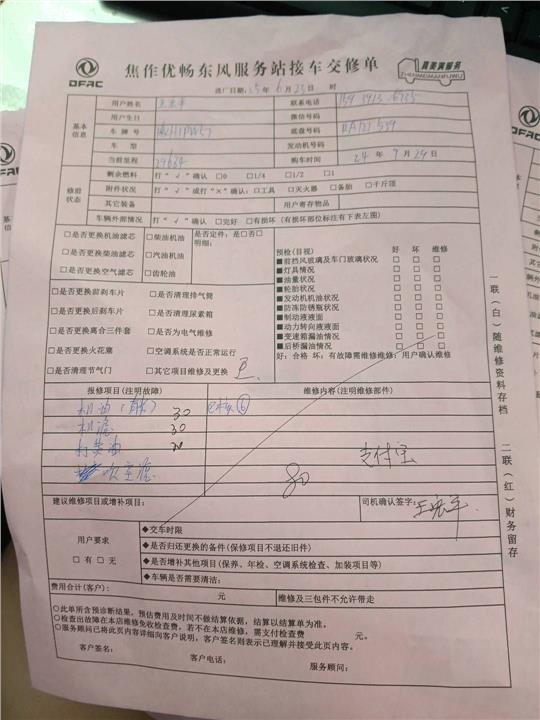 DFAC
焦作优畅东风服务站接车交修单
真美满服务
ZHENMEIMANFUWU
送厂日期: 25年 6月 23日 时
基本信息
用户姓名 联系电话
用户生日 微信号码
车牌号 底盘号码
车型 发动机号码
当前里程 29684 购车时间 24年 9月 29日
修前状态
剩余燃料 打“√”确认 □0 □1/4 □1/2 □1
附件状况 打“√”或打“×”确认：□工具 □灭火器 □备胎 □千斤顶
其它装备 用户寄存物品
车辆外部情况 打“√”确认 □完好 □有损坏（有损坏部位标注有下表左图）
□是否更换机油滤芯 □柴油机油 是否定件：是□否□
□是否更换柴油滤芯 □汽油机油 明细：
□是否更换空气滤芯 □齿轮油
□是否更换前刹车片 □是否清理排气筒
□是否更换后刹车片 □是否清理尿素箱
□是否更换离合三件套 □是否为电气维修
□是否更换火花塞 □空调系统是否正常运行
□是否清理节气门 □其它项目维修及更换
预检(目视) 好 坏 维修
■前挡风玻璃及车门玻璃状况 □ □ □
■灯具情况 □ □ □
■油量状况 □ □ □
■轮胎状况 □ □ □
■发动机机油状况 □ □ □
■防冻防锈瓶状况 □ □ □
■制动液液面 □ □ □
■动力转向液液面 □ □ □
■变速箱漏油情况 □ □ □
■后桥漏油情况 □ □ □
好：合格 坏：有故障需维修维修：用户确认维修
报修项目(注明故障) 维修内容(注明维修部件)
机油 30
机滤 30
打黄油 20
吹空滤
80
支付宝
建议维修项目或增补项目： 司机确认签字：
用户要求
□有 □无
◆交车时限
◆是否归还更换的备件(保修项目不退还旧件)
◆是否增补其他项目(保养、年检、空调系统检查、加装项目等)
◆车辆是否需要清洁：
费用合计(客户)： 元 维修及三包件不允许带走
○此单所含预诊断结果，预估费用及时间不做结算依据，结算以结算单为准。
○检查出故障在本店维修免收检查费，若不在本店维修，需支付检查费 元。
○服务顾问已将此页内容详细向客户说明，客户签名则表示已理解并接受此页内容。
客户签名： 客户电话： 服务顾问：
一联(白)随维修资料存档
二联(红)财务留存
DFAC